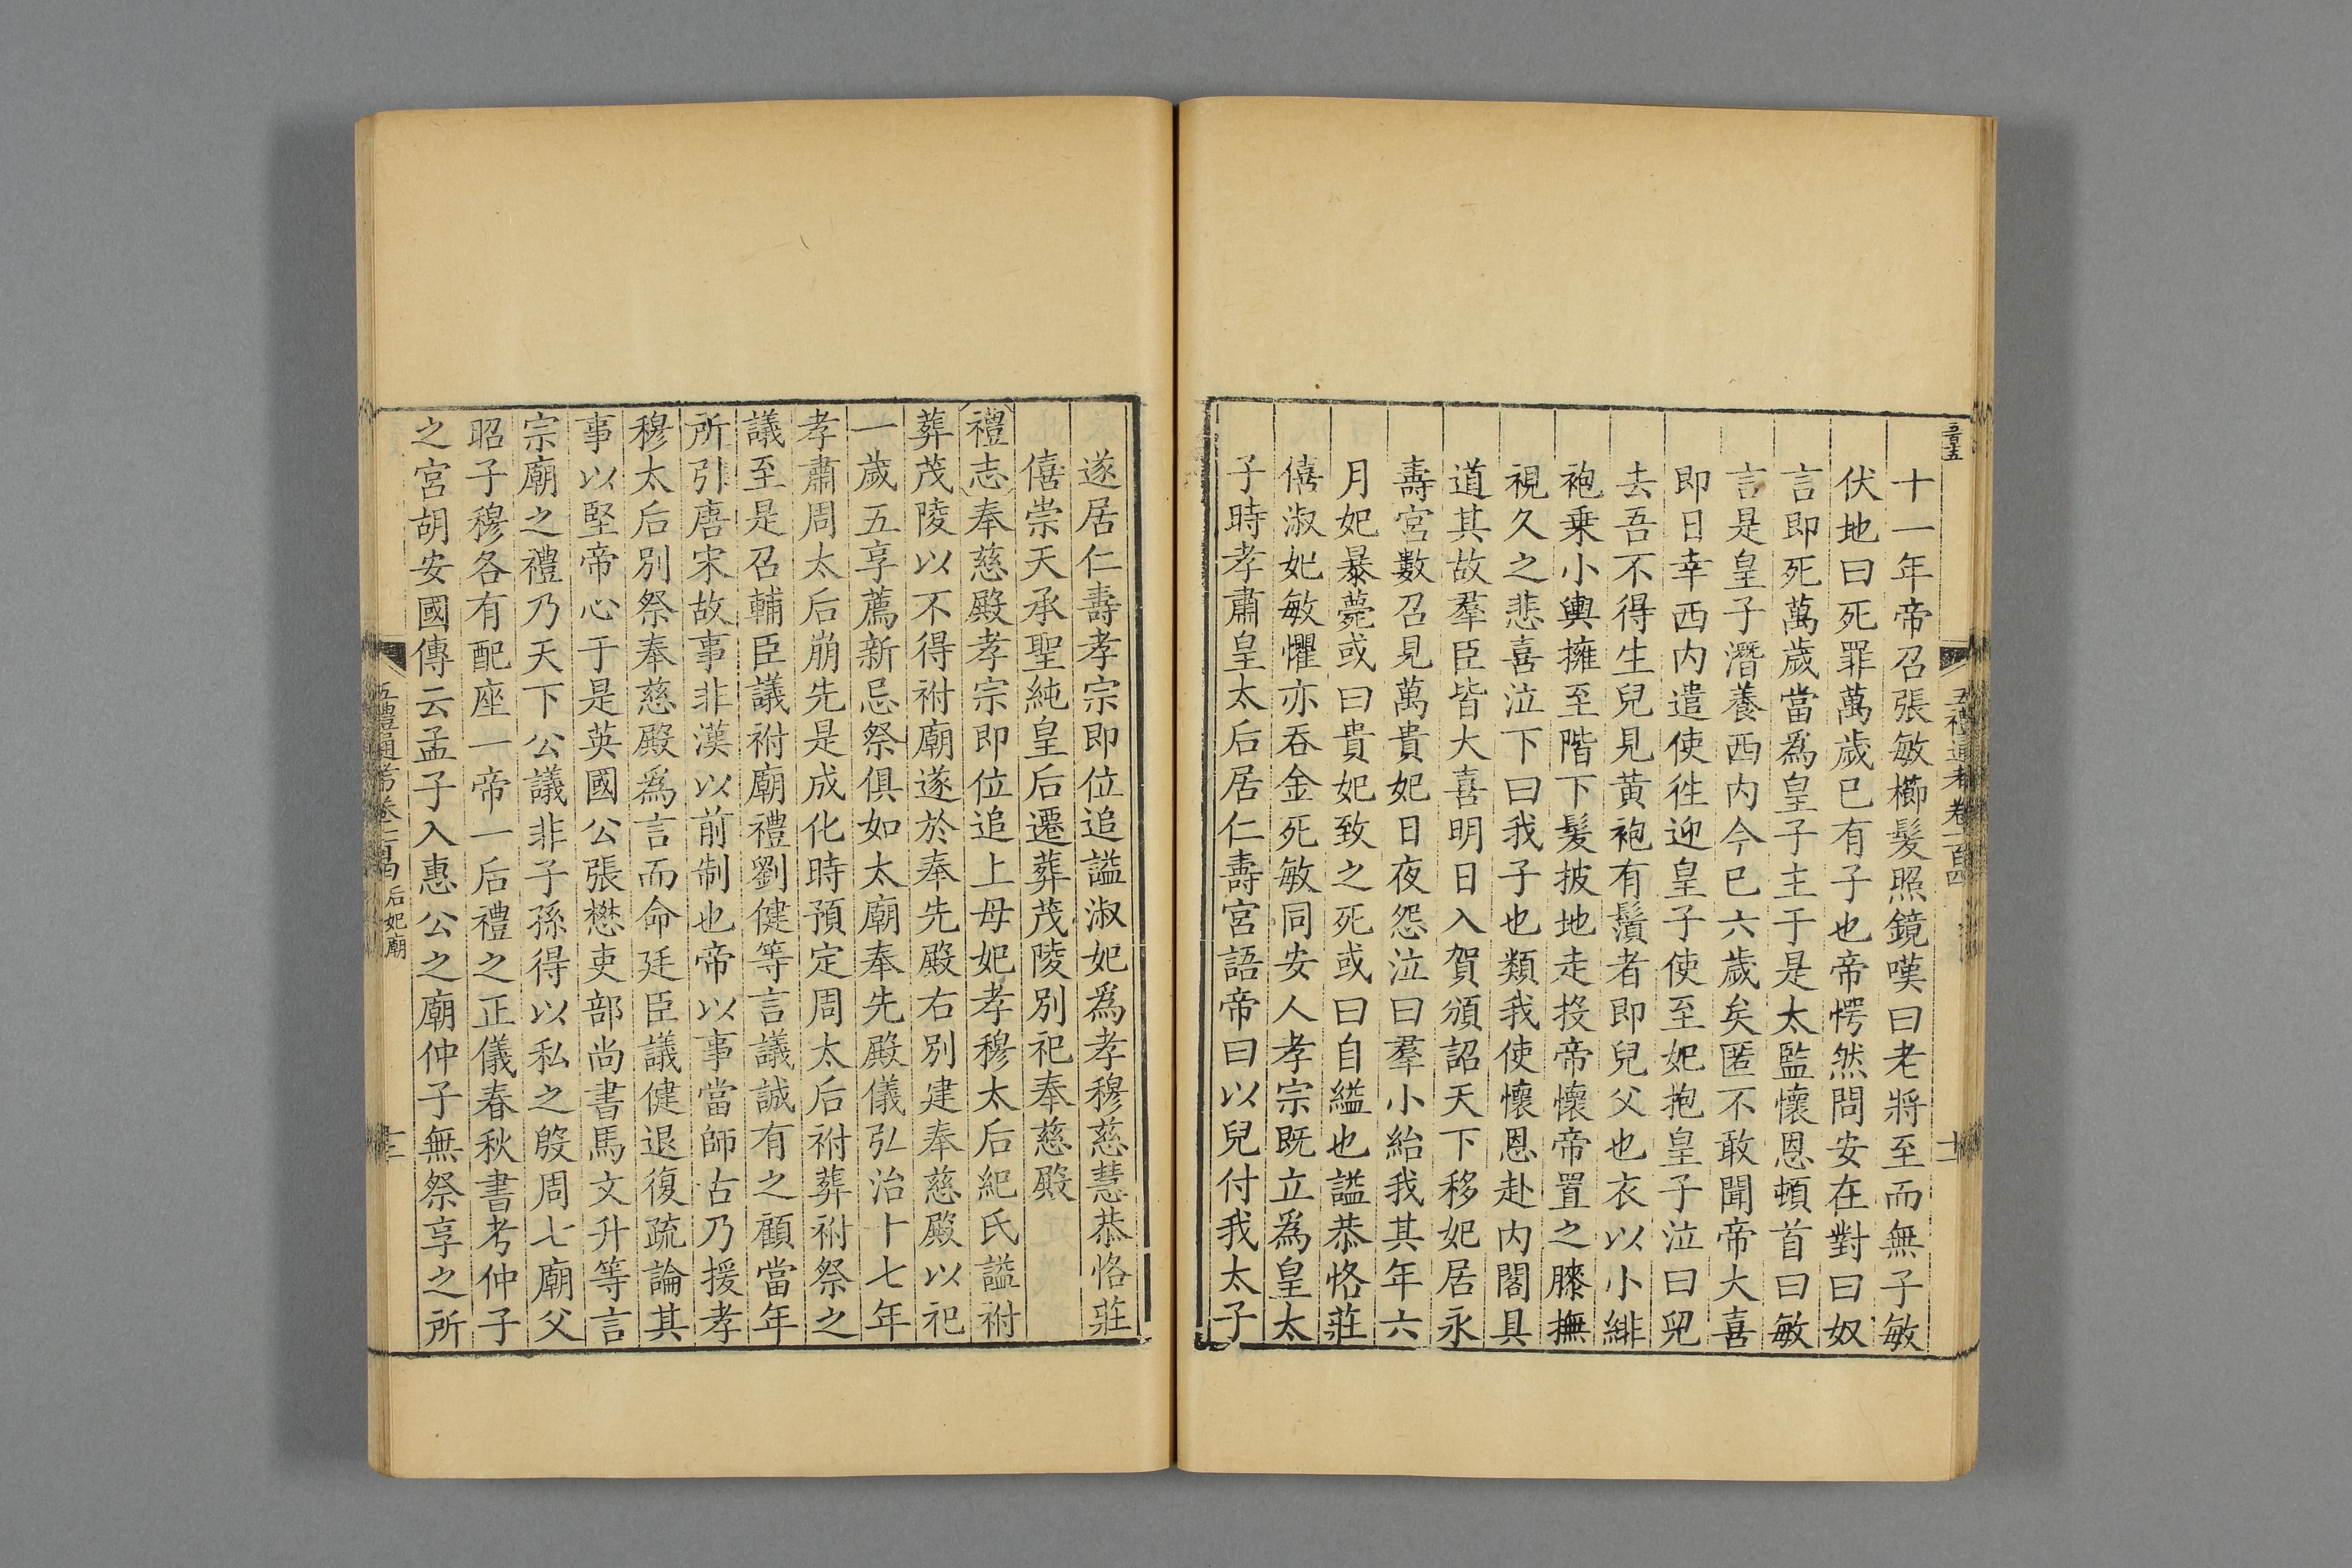 十一年帝召張敏櫛髮照鏡嘆曰老將至而無子敏
伏地曰死罪萬歲已有子也帝愕然問安在對曰奴
言即死萬歲當爲皇子主于是太監懷恩頓首曰敏
言是皇子潛養西内今已六歲矣匿不敢聞帝大喜
即日幸西内遣使徃迎皇子使至妃抱皇子泣曰兒
去吾不得生兒見黄袍有鬚者即兒父也衣以小緋
袍乗小輿擁至階下髪披地走投帝懷帝置之膝撫
視久之悲喜泣下曰我子也類我使懷恩赴内閣具
道其故羣臣皆大喜明日入賀頒詔天下移妃居永
壽宮數召見萬貴妃日夜怨泣曰羣小紿我其年六
月妃暴薨或曰貴妃致之死或曰自縊也謚恭恪莊
僖淑妃敏懼亦吞金死敏同安人孝宗既立爲皇太
子時孝肅皇太后居仁壽宮語帝曰以兒付我太子
遂居仁壽孝宗即位追謚淑妃爲孝穆慈慧恭恪莊
僖崇天承聖純皇后遷葬茂陵別祀奉慈殿
禮志奉慈殿孝宗即位追上母妃孝穆太后紀氏謚祔
葬茂陵以不得祔廟遂於奉先殿右別建奉慈殿以祀
一歲五享薦新忌祭俱如太廟奉先殿儀弘治十七年
孝肅周太后崩先是成化時預定周太后祔葬祔祭之
議至是召輔臣議祔廟禮劉健等言議誠有之顧當年
所引唐宋故事非漢以前制也帝以事當師古乃援孝
穆太后別祭奉慈殿爲言而命廷臣議健退復疏論其
事以堅帝心于是英國公張懋吏部尚書馬文升等言
宗廟之禮乃天下公議非子孫得以私之殷周七廟父
昭子穆各有配座一帝一后禮之正儀春秋書考仲子
之宮胡安國傳云孟子入惠公之廟仲子無祭享之所
五禮通考卷一百四
后妃廟